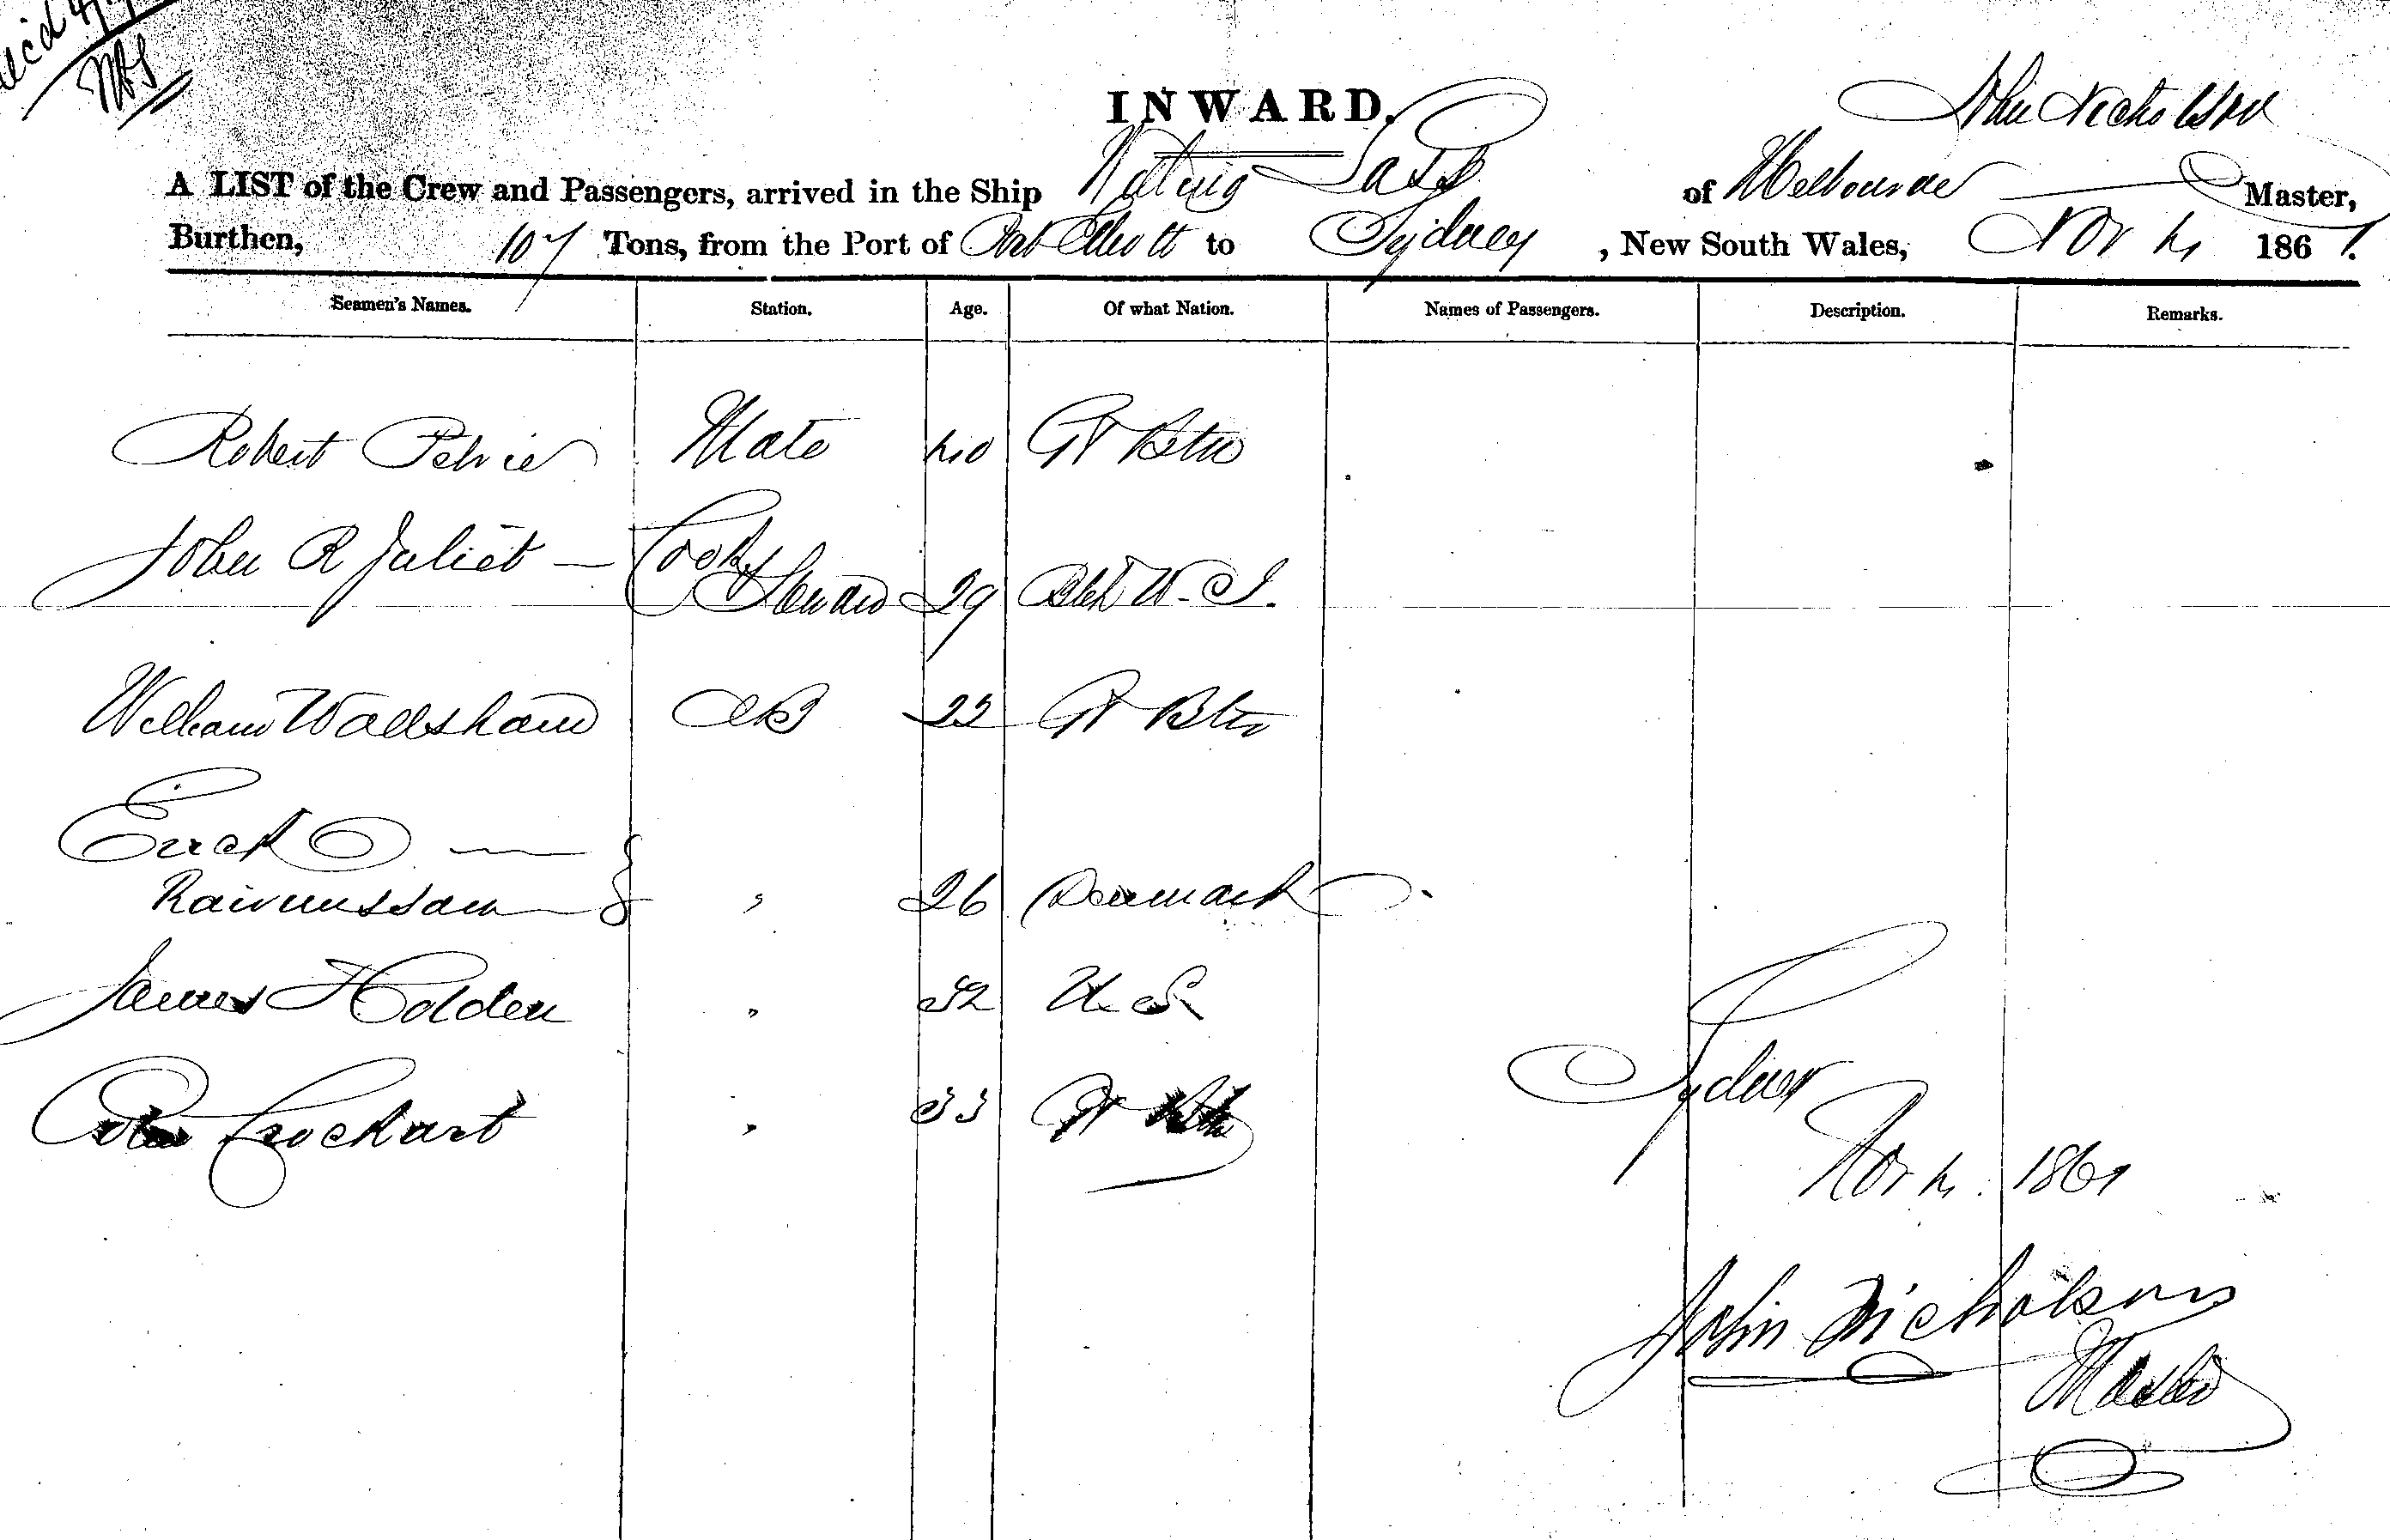 INWARD.
John Nicholson
A LIST of the Crew and Passengers, arrived in the Ship Lass of Melbourne Master,
Burthen, 107 Tons, from the Port of Port Elliott to Sydney, New South Wales, Nov 4 1861.
Seamen's Names. Station. Age. Of what Nation. Names of Passengers. Description. Remarks.
Robert Petrie Mate 40 Gt Btn
John R Juliet — Cook
Steward 29 W. I.
William Wallsham AB 22 Gt Btn
Errck
Raismussam " 26 Denmark
James Holden " 32 U. S
Lockart " 33 Gt Btn
Sydney
Nov 4. 1861
John Nicholson
Master